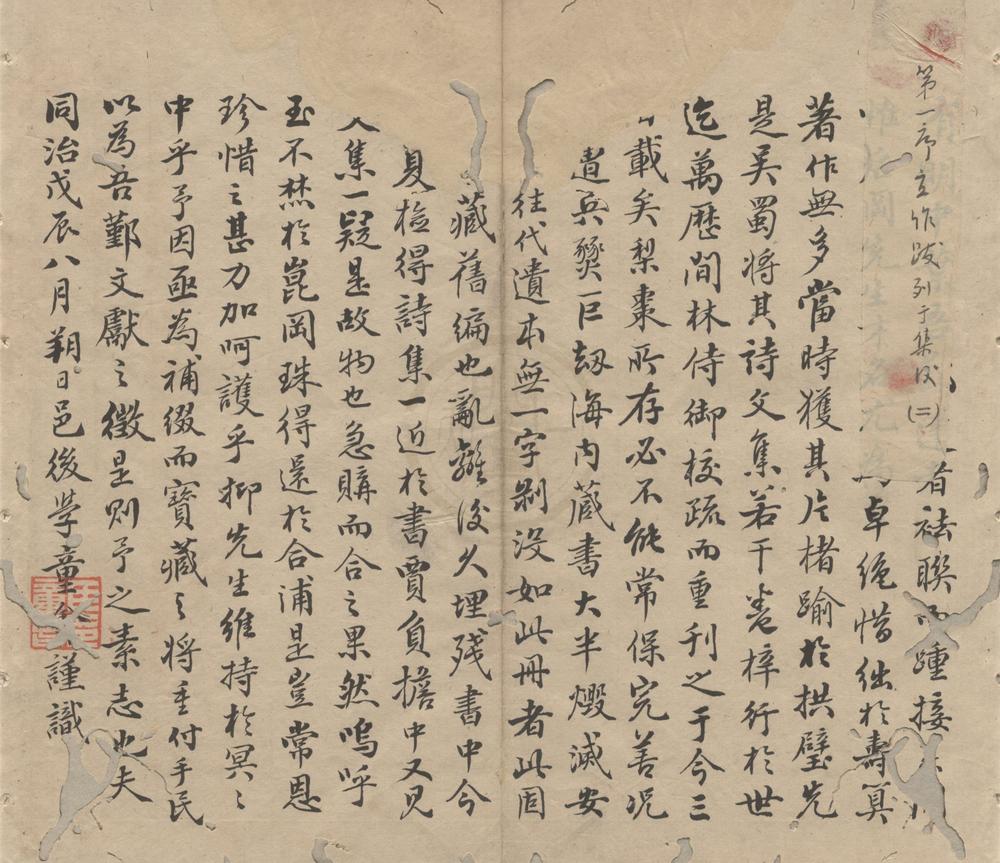 第一序立作跋列于集後(二)
者袪聯而踵接
卓絶惜绌於壽算
著作無多當時獲其片楮踰於拱璧先
是吴蜀將其詩文集若干卷梓行於世
迄萬歷間林侍御校疏而重刊之于今三
載矣梨棗所存必不能常保完善况
遭兵燹巨刼海内藏書大半燬滅安
往代遺本無一字剝没如此冊者此固
藏舊編也亂離後久埋殘書中今
夏檢得詩集一近於書賈負擔中又見
文集一疑是故物也急購而合之果然嗚呼
玉不焚於崑岡珠得還於合浦是豈常恩
珍惜之甚力加呵護乎抑先生維持於冥之
中乎予因亟為補缀而寶藏之將重付手民
以為吾鄞文獻之徵是则予之素志也夫
同治戊辰八月朔日邑後學童謹識